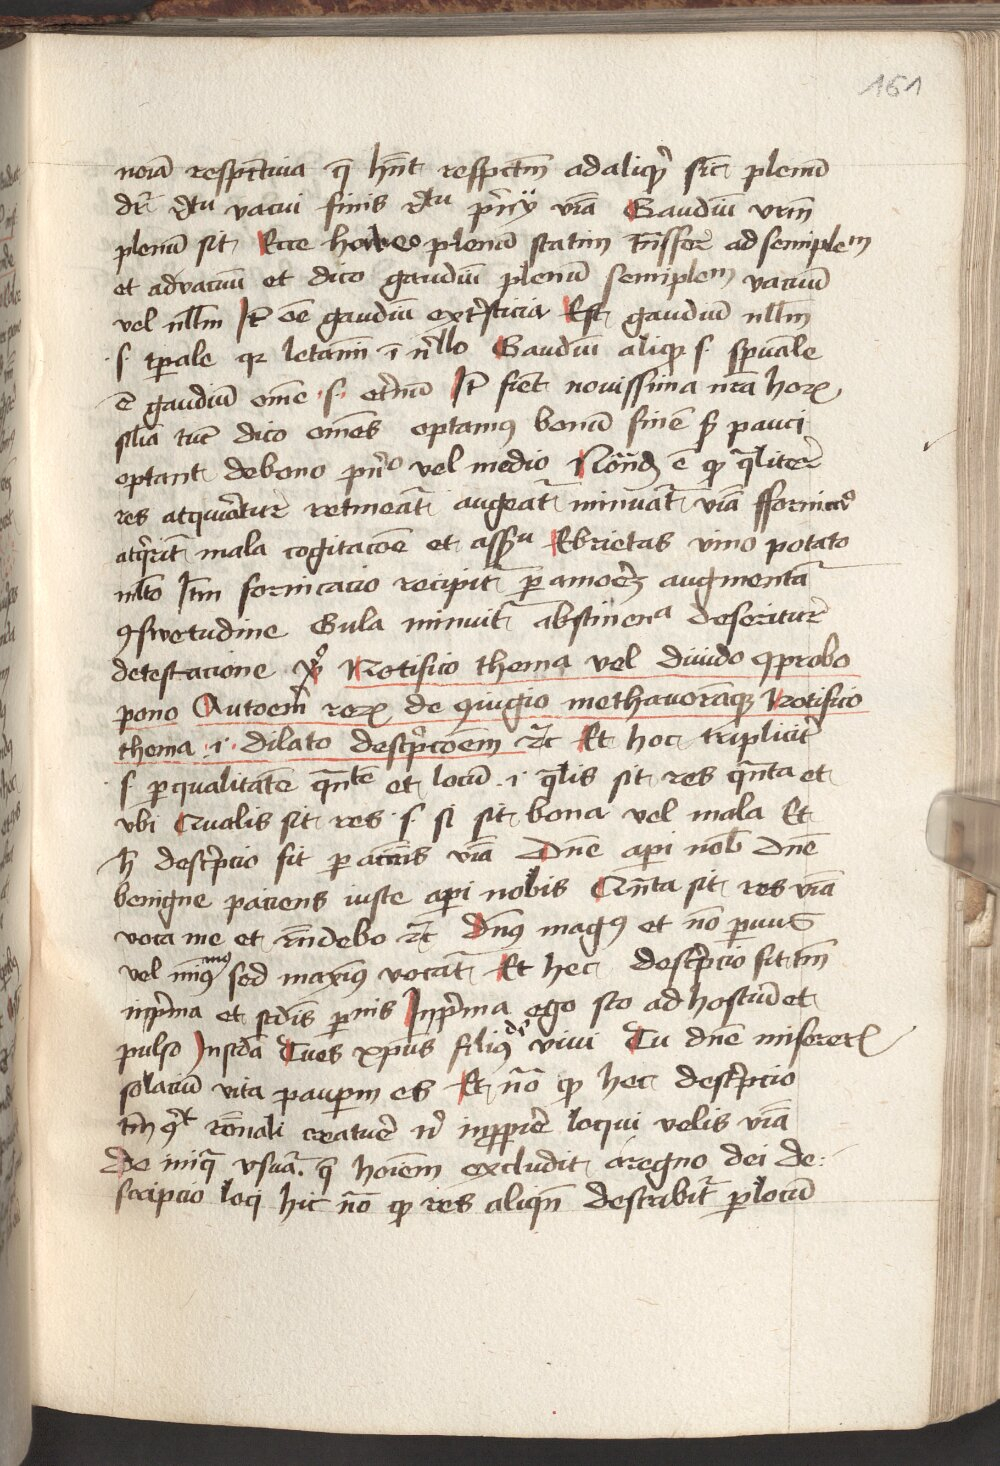 161
noia respctiua q hnt respctm ad aliqd sic plenu
dr rtu vacui finis rtu pncy via Gaudiu vrm
plenu sit Ecce habeo plenu statim tnsfer ad semiplem
et ad vacuu et dico gaudiu plenu semiplem vacuu
vel nllm It oe gaudiu Est gaudiu nllm
·s· tpale qr letam i nllo Gaudiu aliq s· spuale
e gaudiu ome ·s· eternu It fient nouissima nra horx
silia tuc dico omes optamus bonu fine s pauci
optant de bono pnco vel medio Notand e qp qliter
res acquiratur retineat augeat minuat via ffornicaco
acqrit mala cogitacoe et assu Ebrietas vino potato
mlto Itm fornicacio recipit p amore augmenta
gswetudine Gula minuit abstinena deseritur
detestacione xo Notifico thema vel diuido gprobo
pono Autoem rerx de giugio methauoraque Notifico
thema ·i· dilato descpcoem rc Et hoc triplicit
·s· p qualitate qntte et locu ·i· qlis sit res qnta et
vbi Qualis sit res ·s· si sit bona vel mala Et
h descpcio fit p accns via Dne api nob Dne
benigne paciens iuste api nobis Qnta sit res via
voca me et rndebo rc Dns magus et no paruus
vel mius sed maxius vocat Et hec descpcio fit tm
in pma et scdis psnis In pma ego sto ad hostiu et
pulso In scda Tu es xpus filius di viui Tu dne miserere
solaciu vita paupm es Et no qp hec descpcio
tm qt ronali creature n in ppie loqui velis via
De iniq vsura q hoiem excludit a regno dei De:
scripcio loci hic no qp res aliqn describit p locu